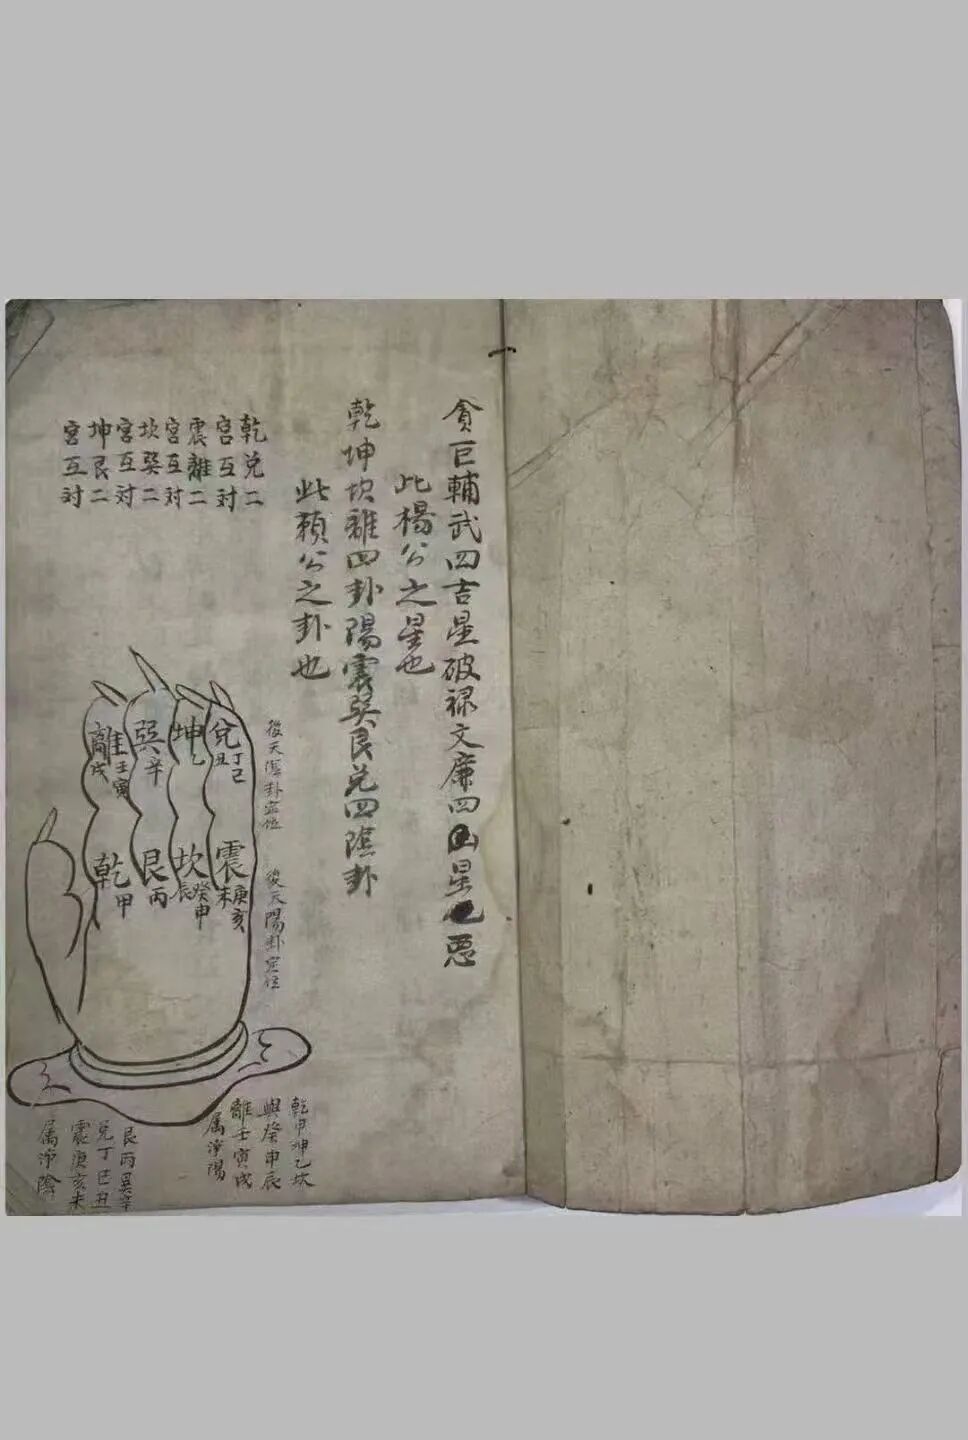 貪巨輔武四吉星破祿文廉四凶星也惡
此楊公之星也
乾坤坎離四卦陽震巽艮兌四隂卦
此賴公之卦也
乾兌二
宮互対
震離二
宮互対
坎巽二
宮互対
坤艮二
宮互対
後天隂卦定位
後天陽卦定位
兌丁己丑
坤乙
巽辛
離壬寅戌
震庚亥未
坎癸申辰
艮丙
乾甲
乾甲坤乙坎
與癸申辰
離壬寅戌
属净陽
艮丙巽辛
兌丁巳丑
震庚亥未
属净隂